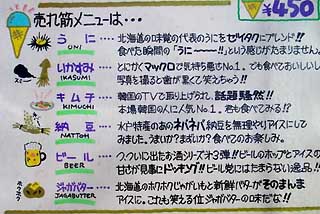 売れ筋メニューは・・・
¥450
うに・・・ 北海道の味覚の代表のうにをゼイタクにアレンジ!!
UNI 食べた瞬間の「うに〜ーー!!」という感じがたまりません。
いかすみ・・・ とにかくマックロで気持ち悪さNo.1。でも食べておいしいし
IKASUMI 写真を撮ると歯が黒くて笑えちゃう!!
キムチ・・・ 韓国のTVで取り上げられ、話題騒然!!
KIMUCHI 本場韓国の人に人気No.1。君も食べてみる!?
納豆・・・ 水戸特産のあのネバネバ納豆を無理やりアイスにして
NATTOH みました。うまい?まずい?食べてのお楽しみ。
ビール・・・ つ、ついに出たお酒シリーズオ3弾!!ビールのホップとアイスの
BEER 甘さが見事にドッキング!!ビール党にはたまらない逸品!!
ジャガバター・・・ 北海道のホクホクじゃがいもと新鮮バターがそのまんま
JAGABUTTER アイスに。これも笑える位ジャガバターの味だな!!